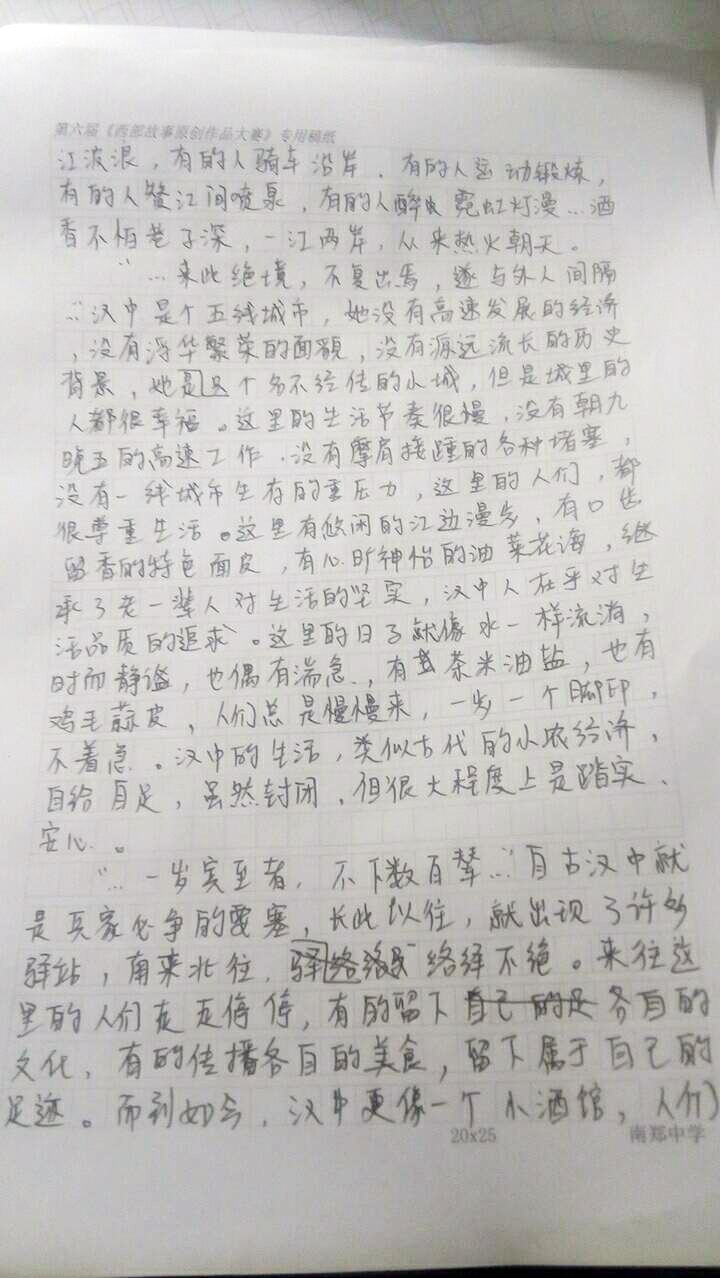 第六届《西部故事原创作品大赛》专用稿纸
江波浪，有的人骑车沿岸，有的人运动锻炼，
有的人赏江间喷泉，有的人醉 霓虹灯漫…酒
香不怕巷子深，一江两岸，从来热火朝天。
“…来此绝境，不复出焉，遂与外人间隔
…”汉中是个五线城市，她没有高速发展的经济
，没有浮华繁荣的面额，没有源远流长的历史
背景，她是 个名不经传的小城，但是城里的
人都很幸福。这里的生活节奏很慢，没有朝九
晚五的高速工作，没有摩肩接踵的各种堵塞，
没有一线城市生存的重压力，这里的人们，都
很尊重生活。这里有悠闲的江边漫步，有口齿
留香的特色面皮，有心旷神怡的油菜花海，继
承了老一辈人对生活的坚实，汉中人在乎对生
活品质的追求。这里的日子就像水一样流淌，
时而静谧，也偶有湍急，有 茶米油盐，也有
鸡毛蒜皮，人们总是慢慢来，一步一个脚印，
不着急。汉中的生活，类似古代的小农经济，
自给自足，虽然封闭，但很大程度上是踏实、
安心。
“…一岁宾至者，不下数百辈…”自古汉中就
是兵家必争的要塞，长此以往，就出现了许多
驿站，南来北往， 络绎不绝。来往这
里的人们走走停停，有的留下自己的是各自的
文化，有的传播各自的美食，留下属于自己的
足迹。而到如今，汉中更像一个小酒馆，人们
20x25
南郑中学